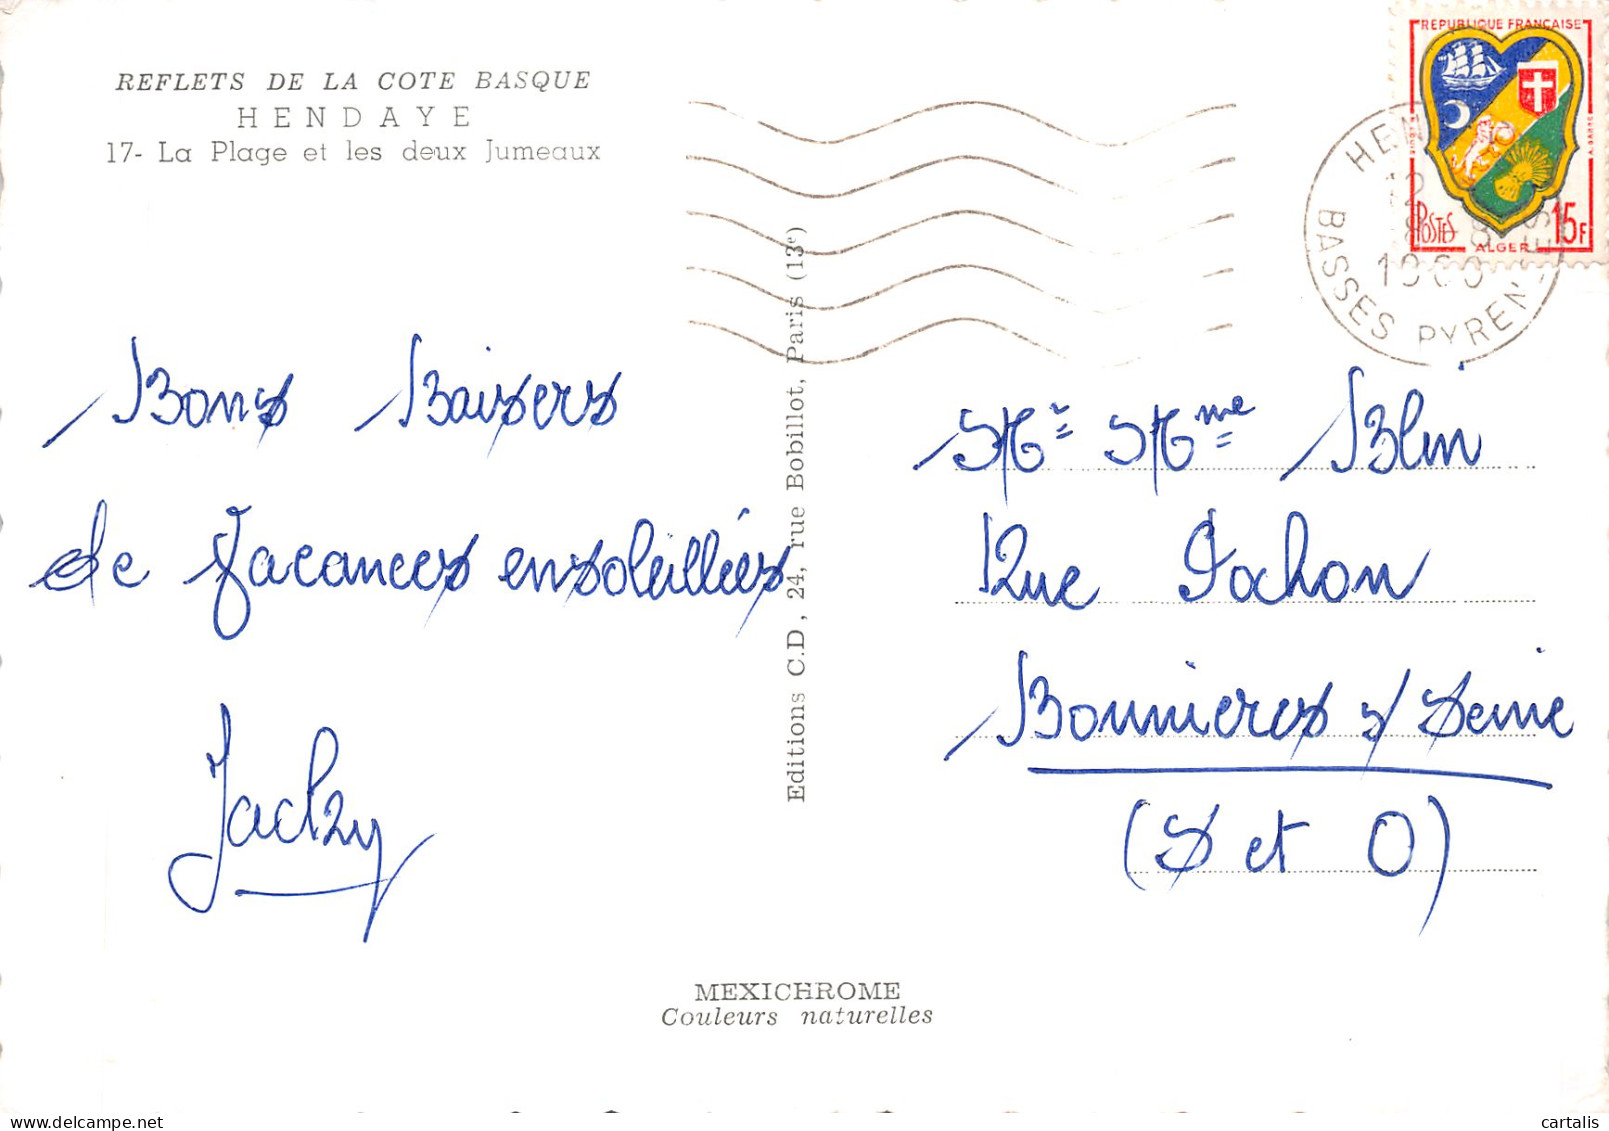 REFLETS DE LA COTE BASQUE
HENDAYE
17- La Plage et les deux Jumeaux
Bons Baisers
de Vacances ensoleillées
Jacky
Editions C.D., 24, rue Bobillot, Paris (13e)
MEXICHROME
Couleurs naturelles
REPUBLIQUE FRANÇAISE
POSTES
ALGER
15F
12
1960
BASSES PYREN
Mr Mme Blin
Rue Pachon
Bonnieres s/ Seine
(S et O)
cartalis